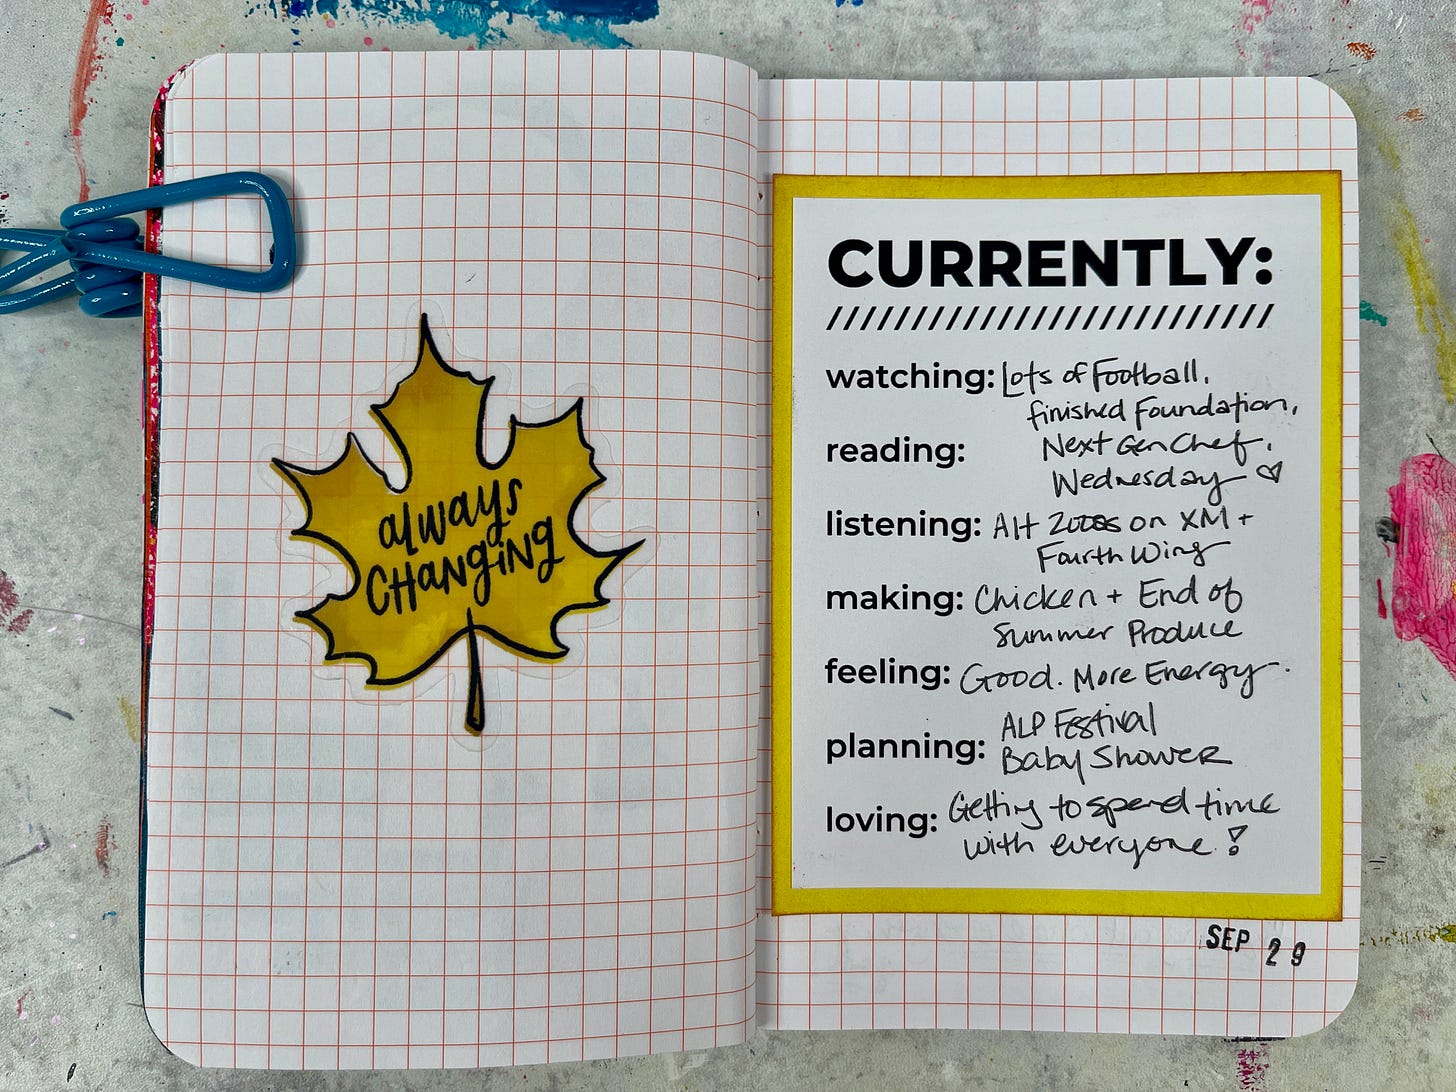 always
CHANGING
CURRENTLY:
watching: Lots of Football,
finished Foundation,
reading: Next Gen Chef,
Wednesday
listening: Alt 2000s on XM +
Fourth Wing
making: Chicken + End of
Summer Produce
feeling: Good. More Energy.
ALP Festival
planning: Baby Shower
loving: Getting to spend time
with everyone!
SEP 29